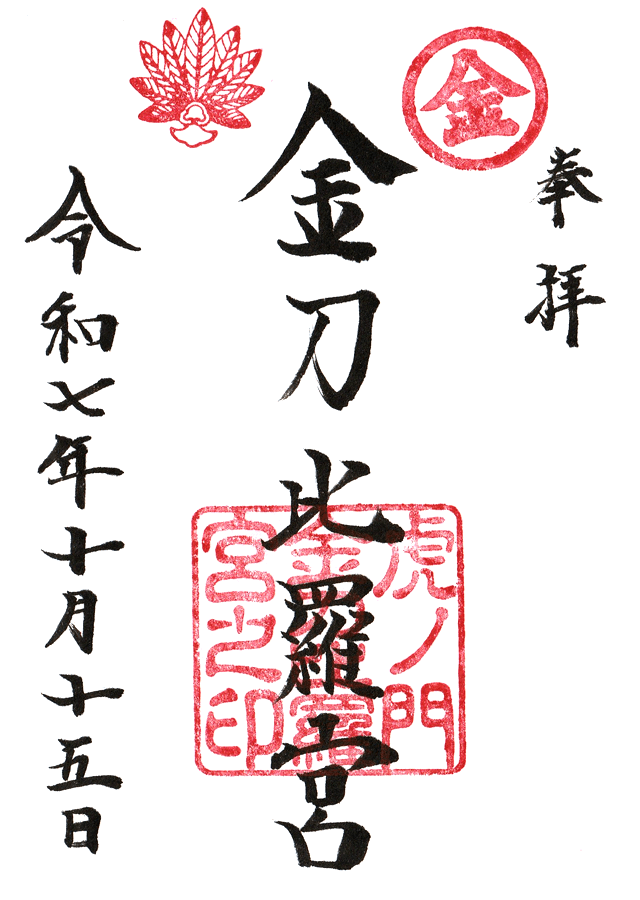 奉拝
金
金刀比羅宮
虎ノ門
金刀比羅
宮之印
令和七年十月十五日